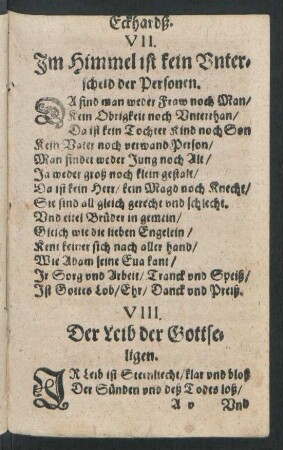 Eckhardß.
VII.
Im Himmel ist kein Vnter-
scheid der Personen.
DA find man weder Fraw noch Man/
Kein Obrigkeit noch Vnterthan/
Da ist kein Tochter Kind noch Son
Kein Vater noch verwand Person/
Man findet weder Jung noch Alt/
Ja weder groß noch klein gestalt/
Da ist kein Herr/ kein Magd noch Knecht/
Sie sind all gleich gerecht vnd schlecht.
Vnd eitel Brüder in gemein/
Gleich wie die lieben Engelein/
Kent keiner sich nach aller hand/
Wie Adam seine Eua kant/
Jr Sorg vnd Arbeit/ Tranck vnd Speiß/
Ist Gottes Lob/ Ehr/ Danck vnd Preiß.
VIII.
Der Leib der Gottse-
ligen.
IR Leib ist Sternliecht/ klar vnd bloß
Der Sünden vnd deß Todes loß/
A v Vnd